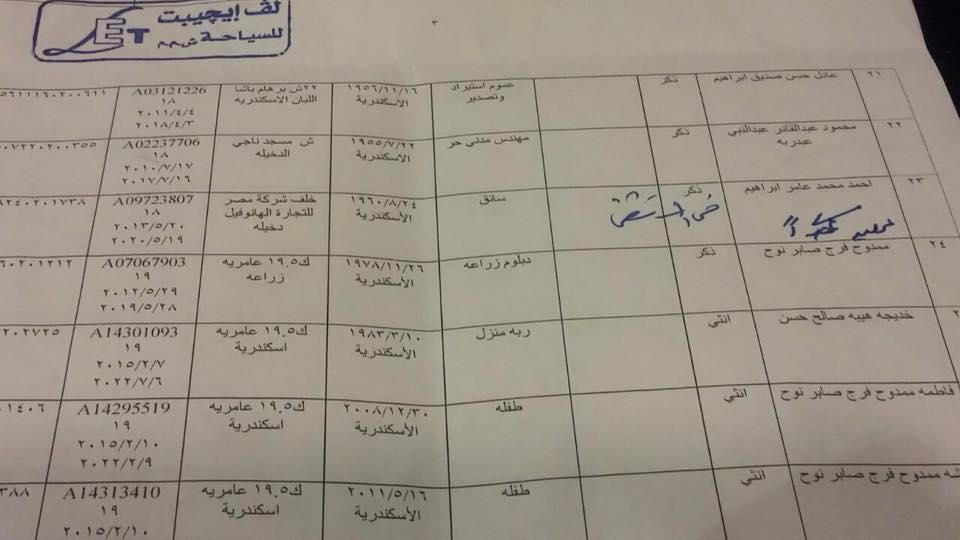 لف إيجيبت
ET للسياحة ش.م.م
٣
٢١ عادل حسن صديق ابراهيم ذكر عموم استيراد وتصدير ١٩٥٦/١١/١٦ الاسكندرية ٢٢ش برهام باشا اللبان الاسكندريه A03121226 ١٨ ٢٠١١/٤/٤ ٢٠١٨/٤/٣ ٥٦١١١٦٠٢٠٠٦١١
٢٢ محمود عبدالقادر عبدالنبي عبدربه ذكر مهندس مدني حر ١٩٥٥/٧/٢٢ الاسكندرية ش مسجد ناجي الدخيله A02237706 ١٨ ٢٠١٠/٧/١٧ ٢٠١٧/٧/١٦ ٠٧٢٢٠٢٠٠٣٥٥
٢٣ احمد محمد عامر ابراهيم ذكر سائق ١٩٦٠/٨/٢٤ الأسكندرية خلف شركة مصر للتجارة الهانوفيل دخيله A09723807 ١٨ ٢٠١٣/٥/٢٠ ٢٠٢٠/٥/١٩ ٨٢٤٠٢٠١٧٣٨
٢٤ ممدوح فرج صابر نوح ذكر دبلوم زراعه ١٩٧٨/١١/٢٦ الأسكندرية ك١٩.٥ عامريه زراعه A07067903 ١٩ ٢٠١٢/٥/٢٩ ٢٠١٩/٥/٢٨ ٦٠٢٠١٢١٢
خديجه هيبه صالح حسن انثي ربه منزل ١٩٨٣/٣/١٠ الأسكندرية ك١٩.٥ عامريه اسكندرية A14301093 ١٩ ٢٠١٥/٢/٧ ٢٠٢٢/٧/٦ ٢٠٢٧٢٥
فاطمه ممدوح فرج صابر نوح انثي طفله ٢٠٠٨/١٢/٣٠ الأسكندرية ك١٩.٥ عامريه اسكندرية A14295519 ١٩ ٢٠١٥/٢/١٠ ٢٠٢٢/٢/٩ ١٤٠٦
شه ممدوح فرج صابر نوح انثي طفله ٢٠١١/٥/١٦ الأسكندرية ك١٩.٥ عامريه اسكندرية A14313410 ١٩ ٢٠١٥/٢/١٠ ٣٨٨